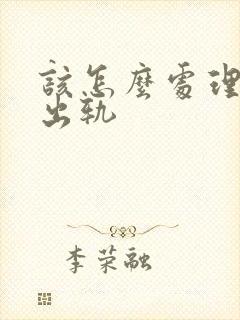 該怎麼處理
出軌
李荣融